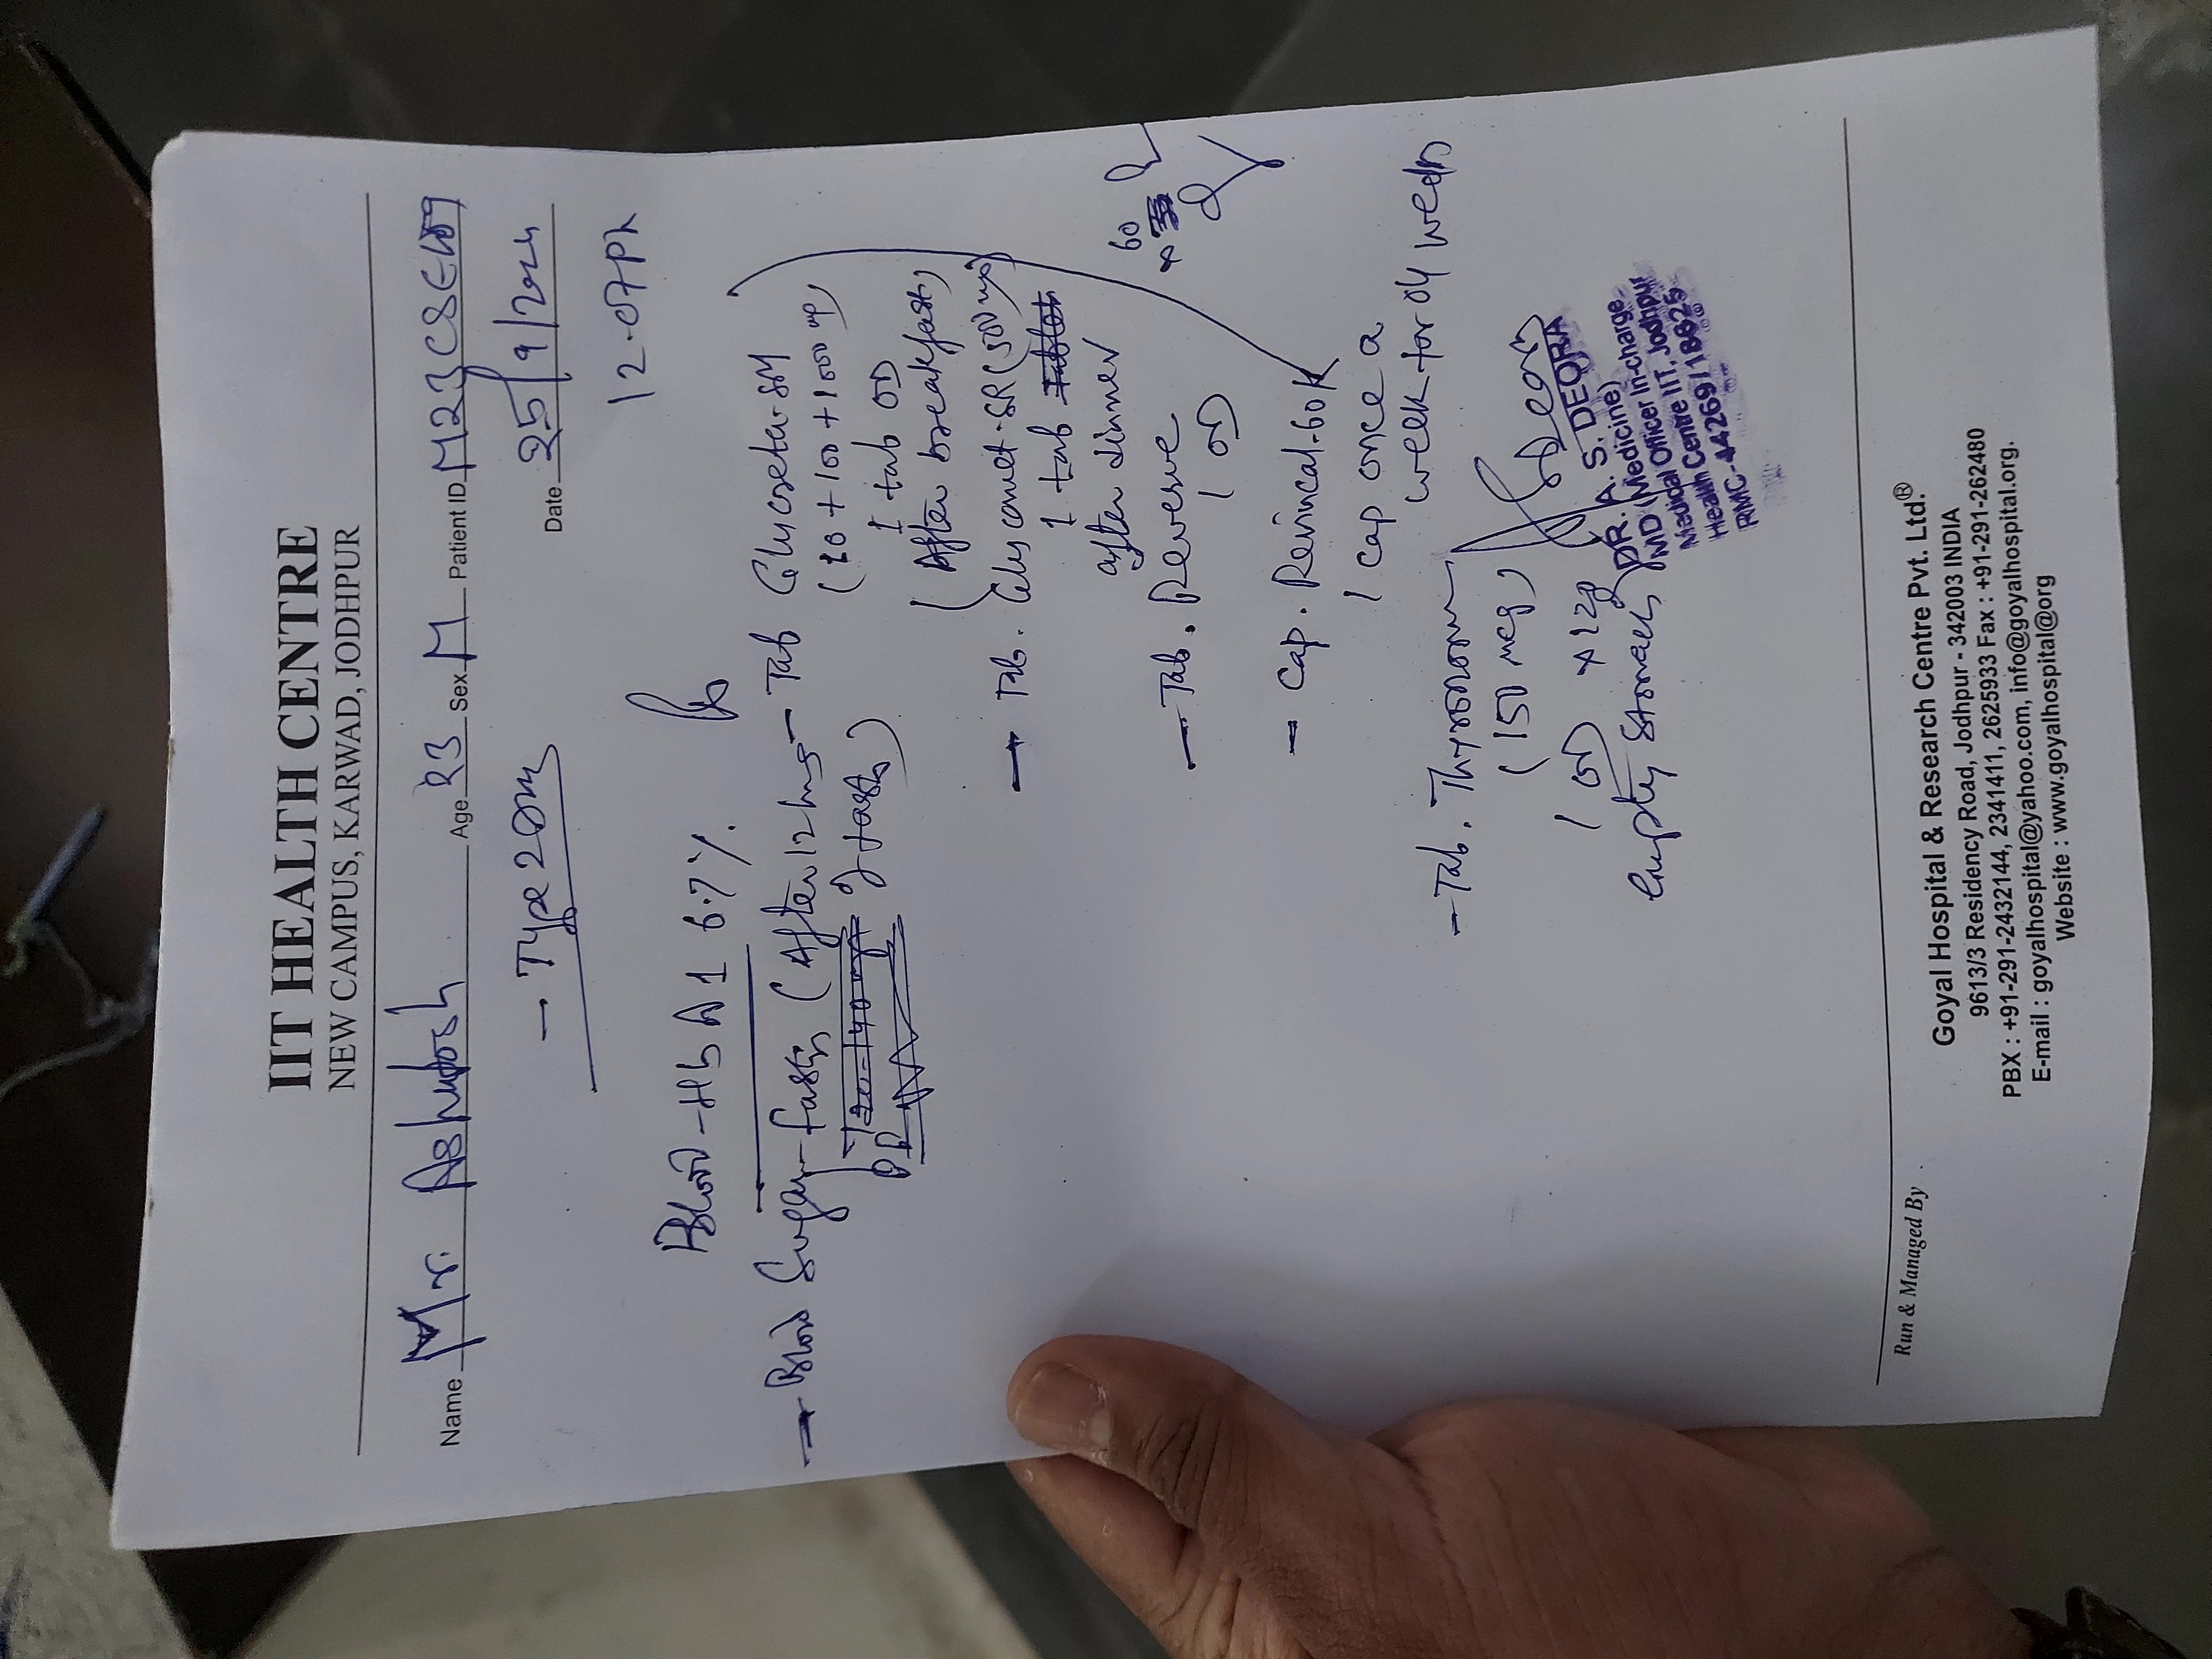 IIT HEALTH CENTRE
NEW CAMPUS, KARWAD, JODHPUR
Name Mr. Ashutosh Age 23 Sex M Patient ID
- Type 2 DM
Date 25/9/2024
12.07 PM
Blood - HbA1 6.7%.
→ Blood Sugar - fasting (After 12 hrs
of fasting)
PP
- Tab Glucreta-SM
(10 + 100 + 1000 mg)
1 tab OD
(After breakfast)
→ Tab. Glycomet-SR (500 mg)
1 tab
after dinner
60
- Tab.
1 OD
- Cap. -60K
1 cap once a
week for 04 weeks
- Tab. Thyronorm
(150 mcg)
1 OD x 120
empty stomach
DR. A. S. DEORA
MD (Medicine)
Medical Officer In-charge
Health Centre IIT, Jodhpur
RMC-44269/18625
Run & Managed By
Goyal Hospital & Research Centre Pvt. Ltd.®
9613/3 Residency Road, Jodhpur - 342003 INDIA
PBX : +91-291-2432144, 2341411, 2625933 Fax : +91-291-262480
E-mail : goyalhospital@yahoo.com, info@goyalhospital.org.
Website : www.goyalhospital@org